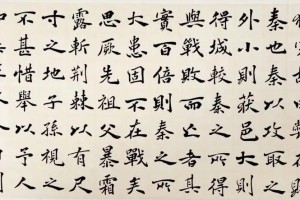 秦也秦以攻取之
外小則獲邑大則
得城較秦之所得
與戰敗而亡者其
實百倍則秦之所
大患固不在戰矣
思厥先祖父暴霜
露斬荊棘以有尺
寸之地子孫視之
不甚惜舉以予人